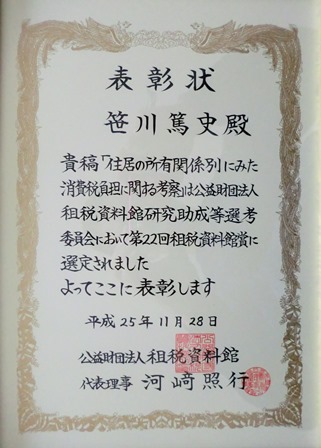 表彰状
笹川篤史殿
貴稿「住居の所有関係別にみた
消費税負担に関する考察」は公益財団法人
租税資料館研究助成等選考
委員会において第22回租税資料館賞に
選定されました
よってここに表彰します
平成25年11月28日
公益財団法人租税資料館
代表理事 河﨑照行